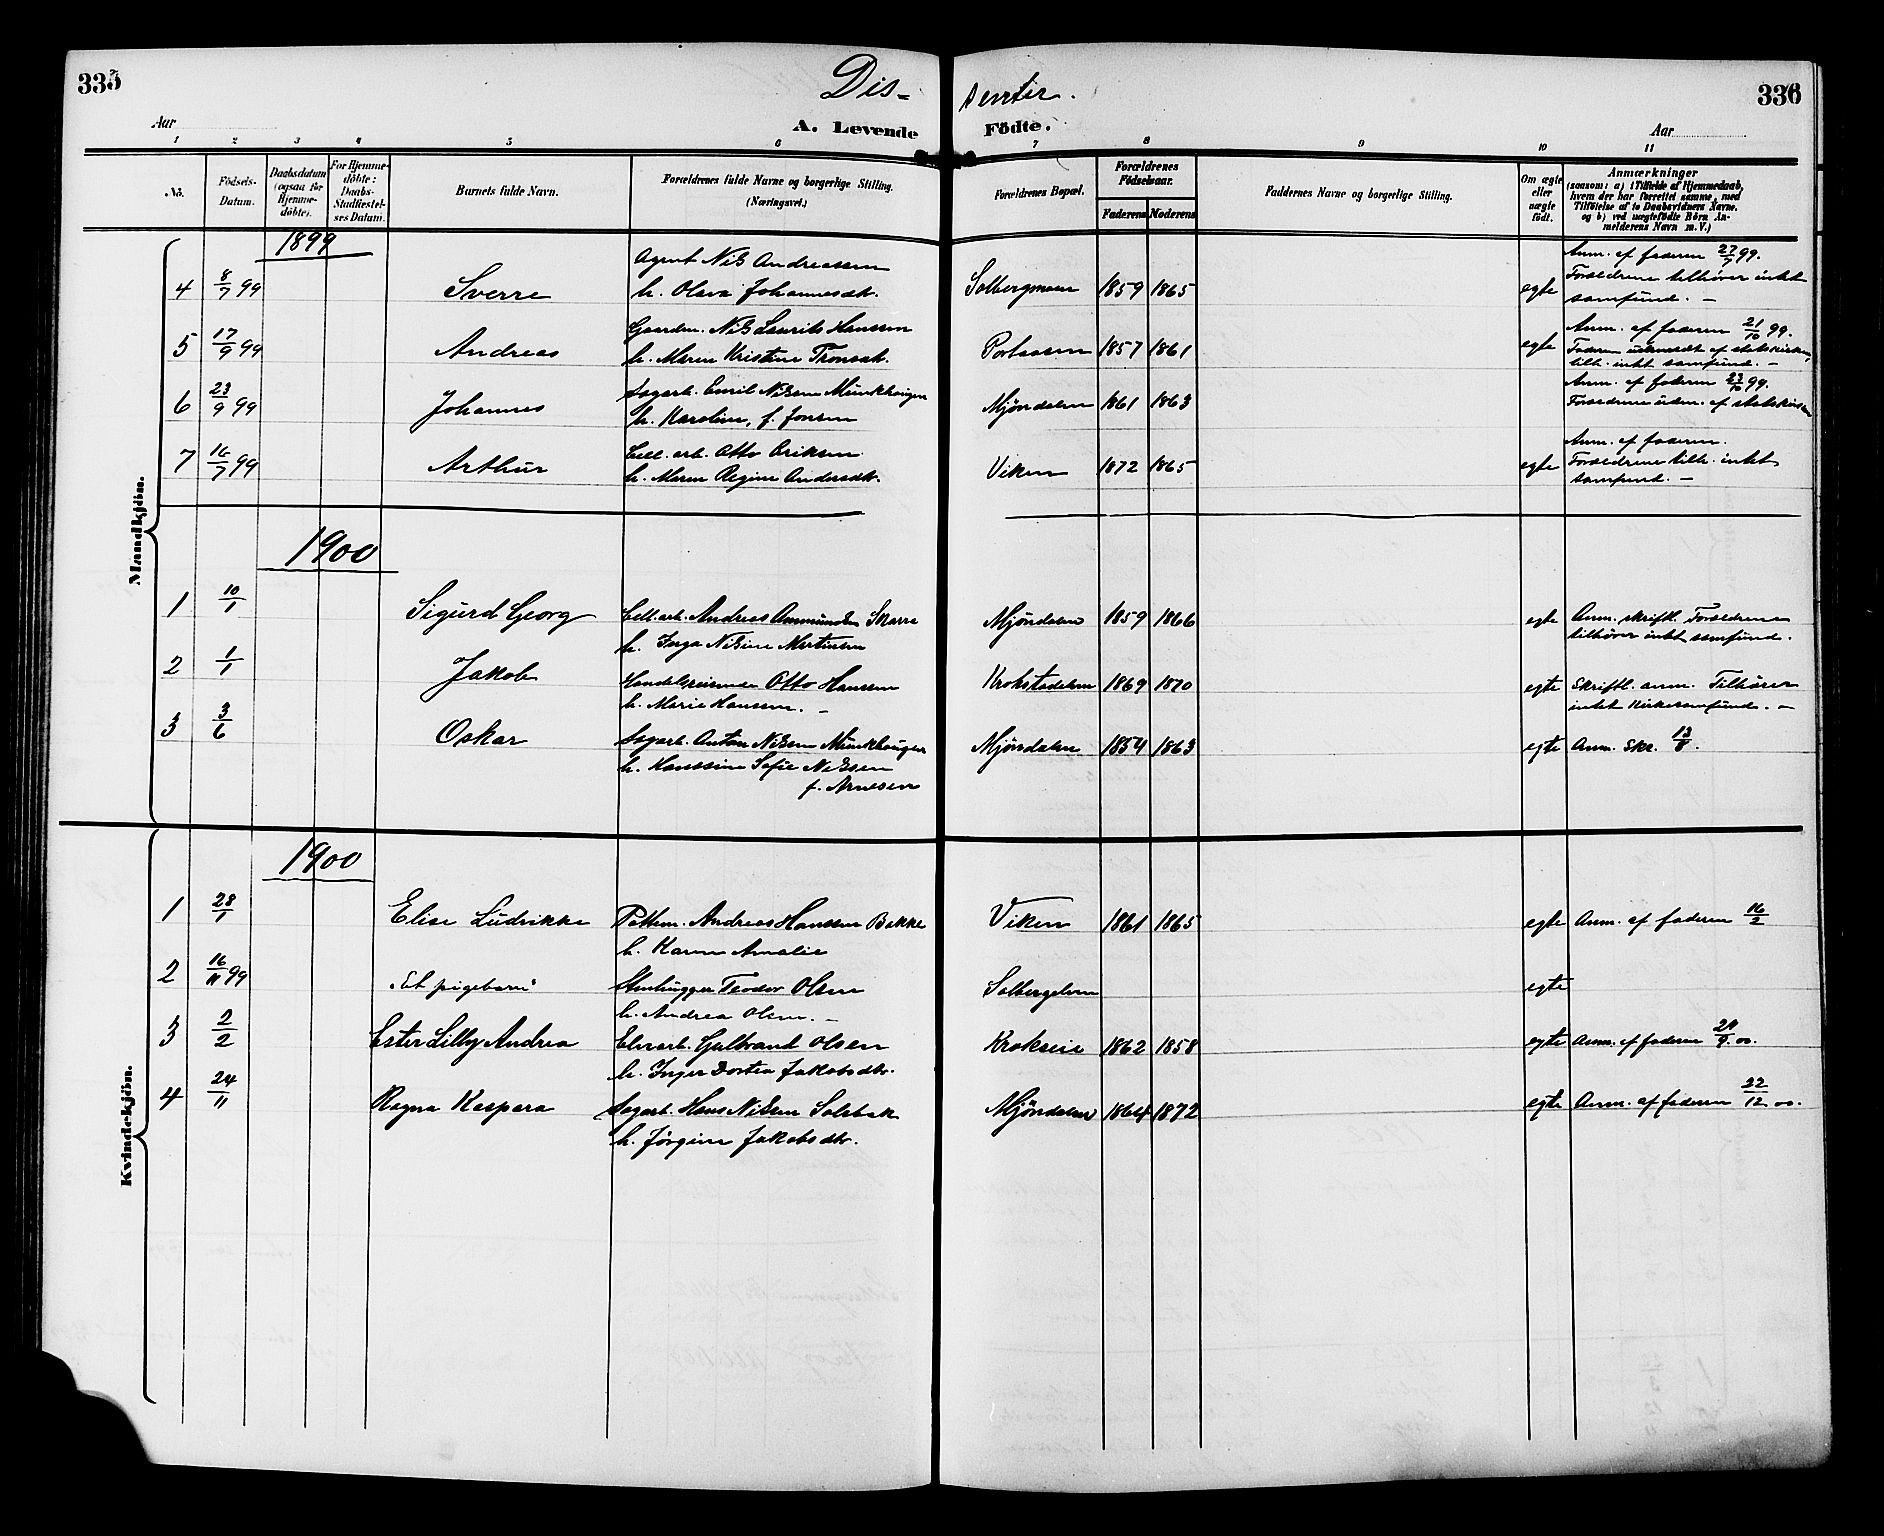 335
Dis-
senter.
336
Aar
A. Levende
Födte.
Aar
1 2 3 4 5 6 7 8 9 10 11
No.
Födsels-
Datum.
Daabsdatum
(ogsaa for
Hjemme-
döbte).
For Hjemme-
döbte:
Daabs-
Stadfæstel-
ses Datum.
Barnets fulde Navn.
Forældrenes fulde Navne og borgerlige Stilling.
(Næringsvei.)
Forældrenes Bopæl.
Forældrenes
Födselsaar.
Faderens Moderens
Faddernes Navne og borgerlige Stilling.
Om ægte
eller
uægte
födt.
Anmærkninger
(saasom: a) i Tilfælde af Hjemmedaab,
hvem der har forrettet samme, med
Tilföielse af to Daabsvidners Navne.
og b) ved uægtefödte Börn An-
melderens Navn m. V.)
Mandkjön.
1899
4 8/7 99 Sverre Agent Nils Andreassen
h. Olava Johannesdt.
Solbergmoen 1859 1865 egte Anm. af faderen 27/7 99.
Forældrene tilhører intet
samfund. —
5 17/9 99 Andreas Gaardm. Nils Laurits Hanssen
h. Maren Kristine Tronsdt.
Portaasen 1857 1861 egte Anm. af faderen 21/10 99.
Faderen udmeldt af statskirken,
tilh. intet samfund. —
6 23/9 99 Johannes Sagarb. Emil Nilsen Munkhaugen
h. Karoline, f. Jonsen
Mjöndalen 1861 1863 Anm. af faderen 23/10 99.
Forældrene udm. af statskirken
7 16/7 99 Arthur Cell. arb. Otto Eriksen
h. Maren Regine Andersdt.
Viken 1872 1865 egte Anm. af faderen.
Forældrene tilh. intet
samfund. —
1900
1 10/1 Sigurd Georg Cell. arb. Andreas Ammundsen Skarre
h. Inga Nilsine Martinsen
Mjöndalen 1859 1866 egte Anm. skriftl. Forældrene
tilhører intet samfund.
2 1/1 Jakob Handelsreisende Otto Hanssen
h. Marie Hanssen. —
Krokstadelven 1869 1870 egte Skriftl. anm. Tilhører
intet Kirkesamfund. —
3 3/6 Oskar Sagarb. Anton Nilsen Munkhaugen
h. Hanssine Sofie Nilssen
f. Arnesen
Mjöndalen 1854 1863 egte Anm. Skr. 13/8.
Kvindekjön.
1900
1 28/1 Elise Ludvikke Pottem. Andreas Hanssen Bakke
h. Karen Amalie
Viken 1861 1865 egte Anm. af faderen 16/2
2 16/11 99 "Et pigebarn" Stenhugger Teodor Olsen
h. Andrea Olsen. —
Solbergelven egte
3 2/2 Ester Lilly Andrea Elvearb. Gulbrand Olsen
h. Inger Dortea Jakobsdtr.
Krokseie 1862 1858 egte Anm. af faderen 29/9 00.
4 24/11 Ragna Kaspara Sagarb. Hans Nilsen Solsbak
h. Jörgine Jakobsdtr.
Mjöndalen 1864 1872 egte Anm. af faderen 22/12 00.